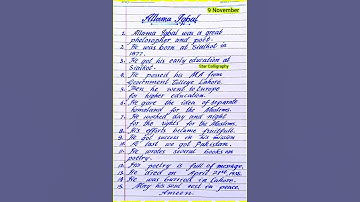 9 November
Allama Iqbal
1. Allama Iqbal was a great
philosopher and poet.
2. He was born at Sialkot in
1877.
3. He got his early education at
Sialkot.
Star Calligraphy
4. He passed his MA from
Government College Lahore.
5. Then he went to Europe
for higher education.
6. He gave the idea of separate
homeland for the Muslims.
7. He worked day and night
for the rights for the Muslims.
8. His efforts became fruitfull.
9. He got success in his mission
10. At last we got Pakistan.
11. He wrotes several books on
poetry.
12. His poetry is full of message.
13. He died on April 21st 1938.
14. He was burried in Lahore.
15. May his soul rest in peace.
Ameen.